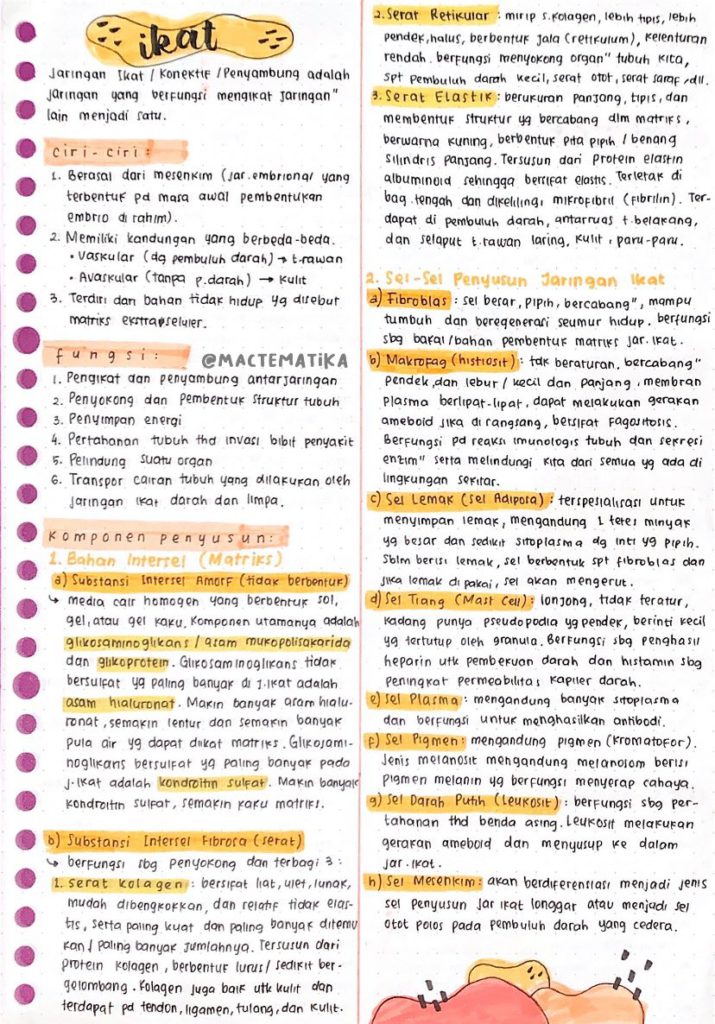 ikat
Jaringan Ikat / Konektif / Penyambung adalah
jaringan yang berfungsi mengikat jaringan"
lain menjadi satu.
ciri-ciri:
1. Berasal dari mesenkim (jar. embrional yang
terbentuk pd masa awal pembentukan
embrio di rahim).
2. Memiliki kandungan yang berbeda-beda.
• Vaskular (dg pembuluh darah) → t.rawan
• Avaskular (tanpa p.darah) → kulit
3. Terdiri dari bahan tidak hidup yg disebut
matriks ekstraseluler.
fungsi:
@MACTEMATIKA
1. Pengikat dan penyambung antarjaringan
2. Penyokong dan Pembentuk struktur tubuh
3. Penyimpan energi
4. Pertahanan tubuh thd invasi bibit penyakit
5. Pelindung suatu organ
6. Transpor cairan tubuh yang dilakukan oleh
jaringan ikat darah dan limpa.
Komponen penyusun:
1. Bahan Intersel (Matriks)
a) Substansi Intersel Amorf (tidak berbentuk)
↳ media cair homogen yang berbentuk sol,
gel, atau gel kaku. Komponen utamanya adalah
glikosaminoglikans / asam mukopolisakarida
dan glikoprotein. Glikosaminoglikans tidak
bersulfat yg paling banyak di j.ikat adalah
asam hialuronat. Makin banyak asam hialu-
ronat, semakin lentur dan semakin banyak
pula air yg dapat diikat matriks. Glikosami-
noglikans bersulfat yg paling banyak pada
j.ikat adalah kondroitin sulfat. Makin banyak
kondroitin sulfat, semakin kaku matriks.
b) Substansi Intersel Fibrosa (serat)
↳ berfungsi sbg penyokong dan terbagi 3:
1. Serat kolagen: bersifat liat, ulet, lunak,
mudah dibengkokkan, dan relatif tidak elas-
tis, serta paling kuat dan paling banyak ditemu
kan / paling banyak jumlahnya. Tersusun dari
protein kolagen, berbentuk lurus / sedikit ber-
gelombang. Kolagen juga baik utk kulit dan
terdapat pd tendon, ligamen, tulang, dan kulit.
2. Serat Retikular: mirip s.kolagen, lebih tipis, lebih
pendek, halus, berbentuk jala (retikulum), kelenturan
rendah. berfungsi menyokong organ" tubuh kita,
spt pembuluh darah kecil, serat otot, serat saraf, dll.
3. Serat Elastik: berukuran panjang, tipis, dan
membentuk struktur yg bercabang dlm matriks,
berwarna kuning, berbentuk pita pipih / benang
silindris panjang. Tersusun dari protein elastin
albuminoid sehingga bersifat elastis. Terletak di
bag. tengah dan dikelilingi mikrofibril (fibrilin). Ter-
dapat di pembuluh darah, antarruas t.belakang,
dan selaput t.rawan laring, kulit, paru-paru.
2. Sel-Sel Penyusun Jaringan Ikat
a) Fibroblas: sel besar, pipih, bercabang", mampu
tumbuh dan beregenerasi seumur hidup. berfungsi
sbg bakal / bahan pembentuk matriks jar. ikat.
b) Makrofag (histiosit): tak beraturan, bercabang"
pendek, dan lebur / kecil dan panjang, membran
plasma berlipat-lipat, dapat melakukan gerakan
ameboid jika dirangsang, bersifat fagositosis.
Berfungsi pd reaksi imunologis tubuh dan sekresi
enzim" serta melindungi kita dari semua yg ada di
lingkungan sekitar.
c) Sel Lemak (Sel Adiposa): terspesialisasi untuk
menyimpan lemak, mengandung 1 tetes minyak
yg besar dan sedikit sitoplasma dg inti yg pipih.
Sblm berisi lemak, sel berbentuk spt fibroblas dan
jika lemak di pakai, sel akan mengerut.
d) Sel Tiang (Mast Cell): lonjong, tidak teratur,
kadang punya pseudopodia yg pendek, berinti kecil
yg tertutup oleh granula. Berfungsi sbg penghasil
heparin utk pembekuan darah dan histamin sbg
peningkat permeabilitas kapiler darah.
e) Sel Plasma: mengandung banyak sitoplasma
dan berfungsi untuk menghasilkan antibodi.
f) Sel Pigmen: mengandung pigmen (kromatofor).
Jenis melanosit mengandung melanosom berisi
pigmen melanin yg berfungsi menyerap cahaya.
g) Sel Darah Putih (Leukosit): berfungsi sbg per-
tahanan thd benda asing. Leukosit melakukan
gerakan ameboid dan menyusup ke dalam
jar. ikat.
h) Sel Mesenkim: akan berdiferentiasi menjadi jenis
sel penyusun jar ikat longgar atau menjadi sel
otot polos pada pembuluh darah yang cedera.